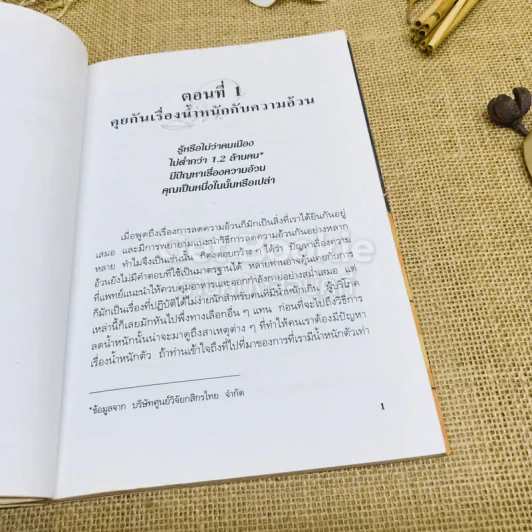 ตอนที่ 1
คุยกันเรื่องน้ำหนักกับความอ้วน
รู้หรือไม่ว่าคนเมือง
ไม่ต่ำกว่า 1.2 ล้านคน*
มีปัญหาเรื่องความอ้วน
คุณเป็นหนึ่งในนั้นหรือเปล่า
เมื่อพูดถึงเรื่องการลดความอ้วนก็มักเป็นสิ่งที่เราได้ยินกันอยู่
เสมอ และมีการพยายามแนะนำวิธีการลดความอ้วนกันอย่างหลาก
หลาย ทำไมจึงเป็นเช่นนั้น ก็คงตอบกว้าง ๆ ได้ว่า ปัญหาเรื่องความ
อ้วนยังไม่มีคำตอบที่ใช้เป็นมาตรฐานได้ หลายท่านอาจคุ้นเคยกับการ
ที่แพทย์แนะนำให้ควบคุมอาหารและออกกำลังกายอย่างสม่ำเสมอ แต่
ก็มักจะเป็นเรื่องที่ปฏิบัติได้ไม่ง่ายนักสำหรับคนที่มีน้ำหนักเกิน ผู้บริโภค
เหล่านี้ก็เลยมักหันไปพึ่งทางเลือกอื่น ๆ แทน ก่อนที่จะไปถึงวิธีการ
ลดน้ำหนักนั้นน่าจะมาดูถึงสาเหตุต่าง ๆ ที่ทำให้คนเราต้องมีปัญหา
เรื่องน้ำหนักตัว ถ้าท่านเข้าใจถึงที่ไปที่มาของการที่เรามีน้ำหนักตัวเท่า
*ข้อมูลจาก บริษัทศูนย์วิจัยกสิกรไทย จำกัด
1